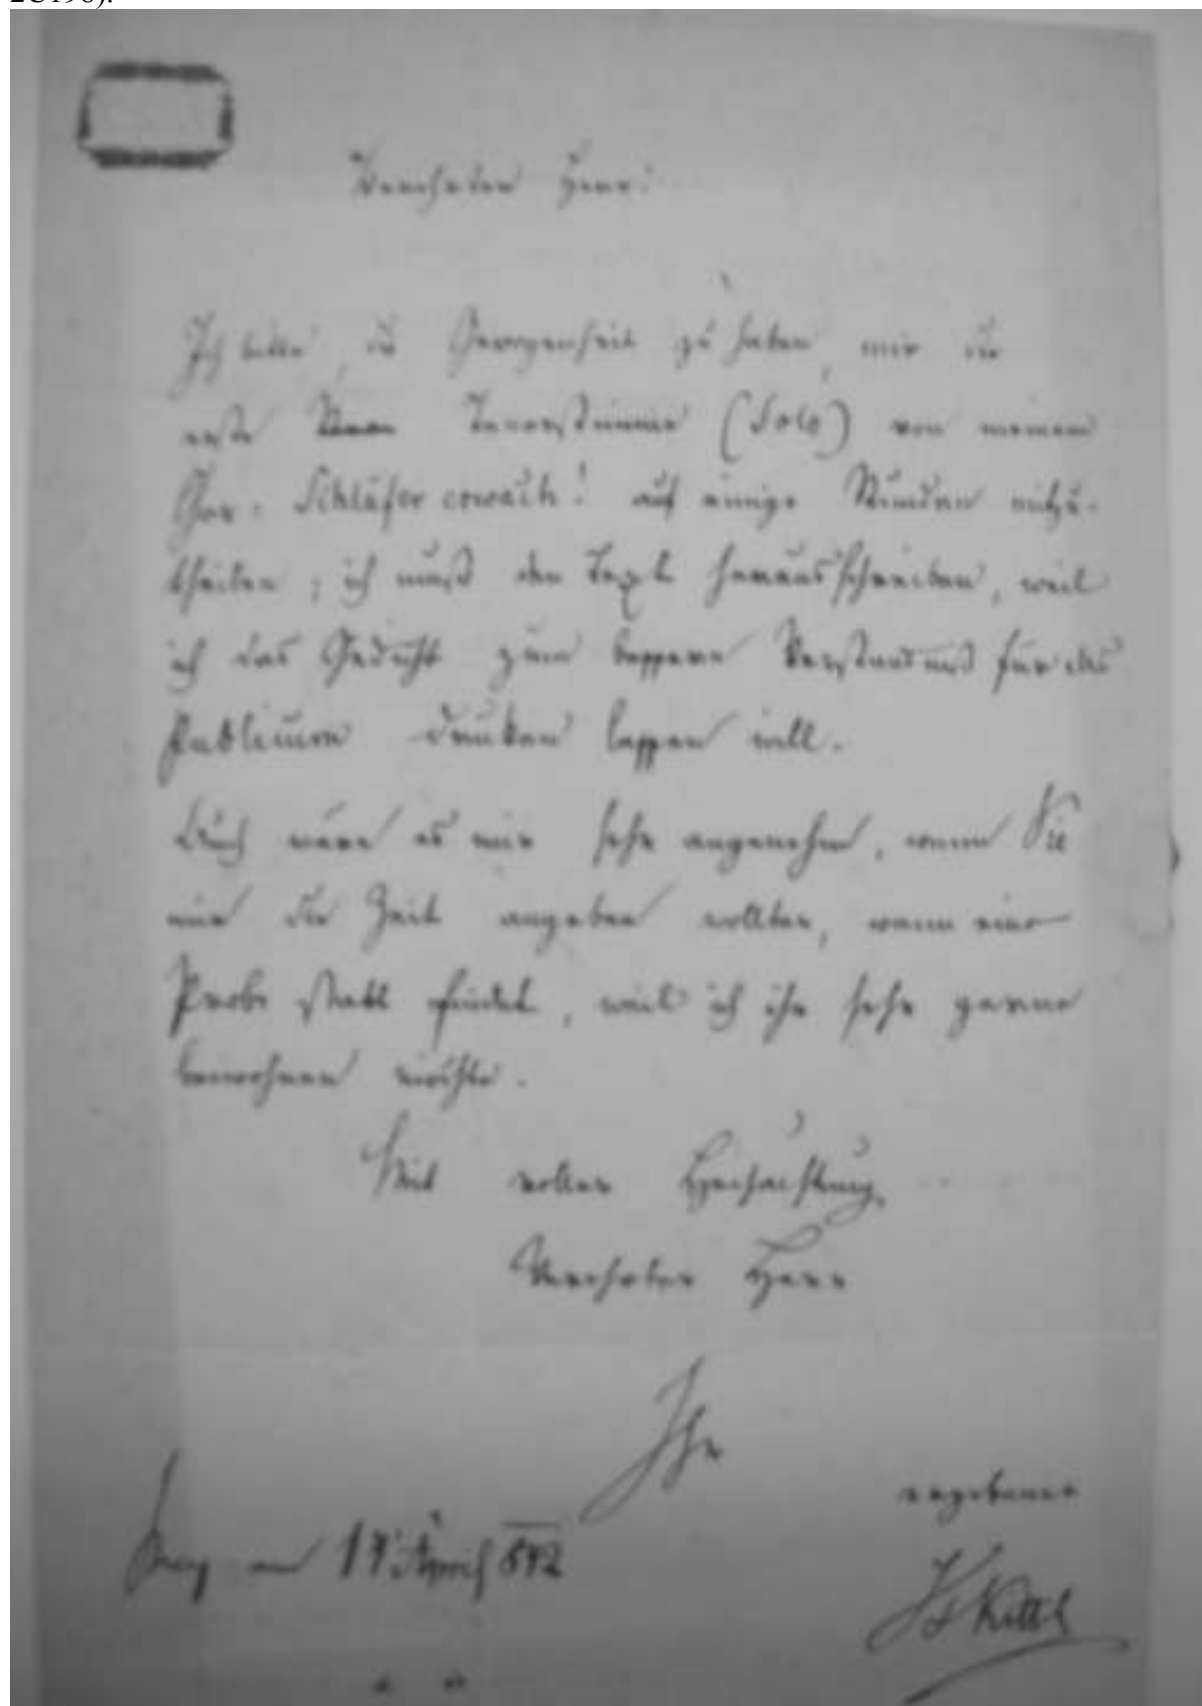 Verehrter Herr!
Ich bitte, die Gewogenheit zu haben, mir die
erste Tenorstimme (Solo) von meinem
Chor: Schläfer erwach! auf einige Stunden mitzu-
theilen; ich muß den Text herausschreiben, weil
ich das Gedicht zum bessern Verständniß für das
Publicum drucken lassen will.
Auch wäre es mir sehr angenehm, wenn Sie
mir die Zeit angeben wollten, wann eine
Probe statt findet, weil ich ihr sehr gerne
beiwohnen möchte.
Mit voller Hochachtung
Verehrter Herr
Ihr
ergebener
Prag am April 842
Kittl